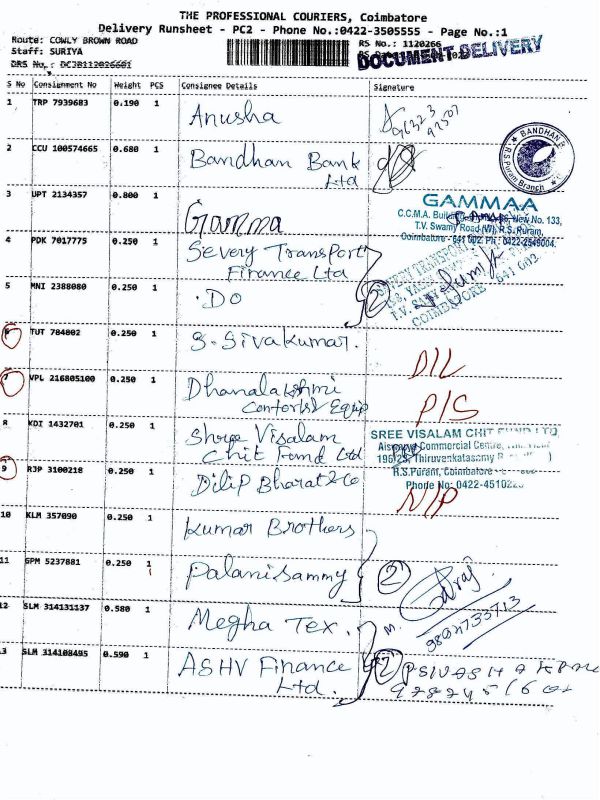 THE PROFESSIONAL COURIERS, Coimbatore
Delivery Runsheet - PC2 - Phone No.:0422-3505555 - Page No.:1
Route: COWLY BROWN ROAD
RS No.: 1120266
DOCUMENT DELIVERY
Staff: SURIYA
DRS No.: DCJB1120266
S No Consignment No Weight PCS Consignee Details Signature
1 TRP 7939683 0.190 1 Anusha
2 CCU 100574665 0.680 1 Bandhan Bank
Ltd
BANDHAN
R.S Puram Branch
3 UPT 2134357 0.800 1 Gamma
GAMMAA
New No. 133,
T.V. Swamy Road (W), R.S. Puram,
Coimbatore - 641 002. Ph: 0422-2549004.
4 PDK 7017775 0.250 1 Severy Transport
Finance Ltd
2
COIMBATORE 641 002
5 MNI 2388080 0.250 1 . DO
6 TUT 784802 0.250 1 S. Sivakumar.
D/L
7 VPL 216805100 0.250 1 Dhanalakshmi
Equip
P/S
8 KDI 1432701 0.250 1 Shree Visalam
Chit Fund Ltd
SREE VISALAM CHIT FUND LTD
Commercial Centre,
Thiruvenkatasamy
R.S.Puram, Coimbatore
Phone No: 0422-4510
9 RJP 3100218 0.250 1 Dilip Bharat & Co
N/P
10 KLM 357090 0.250 1 Kumar Brothers
11 GPM 5237881 0.250 1 Palanisammy
2
12 SLM 314131137 0.580 1 Megha Tex.
13 SLM 314108495 0.590 1 ASHV Finance
Ltd.
2